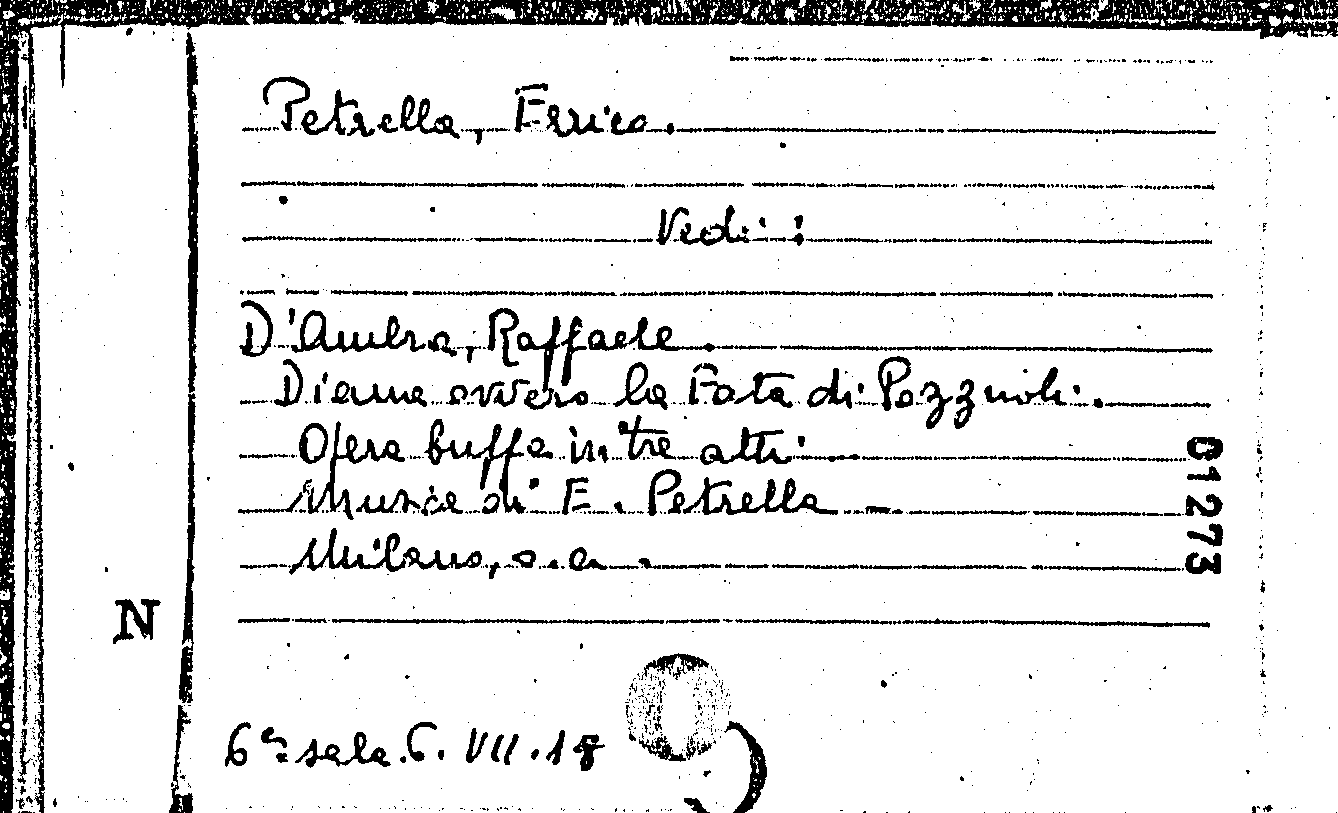 Petrella, Errico.
Vedi:
D'Ambra, Raffaele.
Diana ovvero la Fata di Pozzuoli.
Opera buffa in tre atti -
Musica di E. Petrella -
Milano, s.a.
01273
N
6ª sala. 6. VII. 18